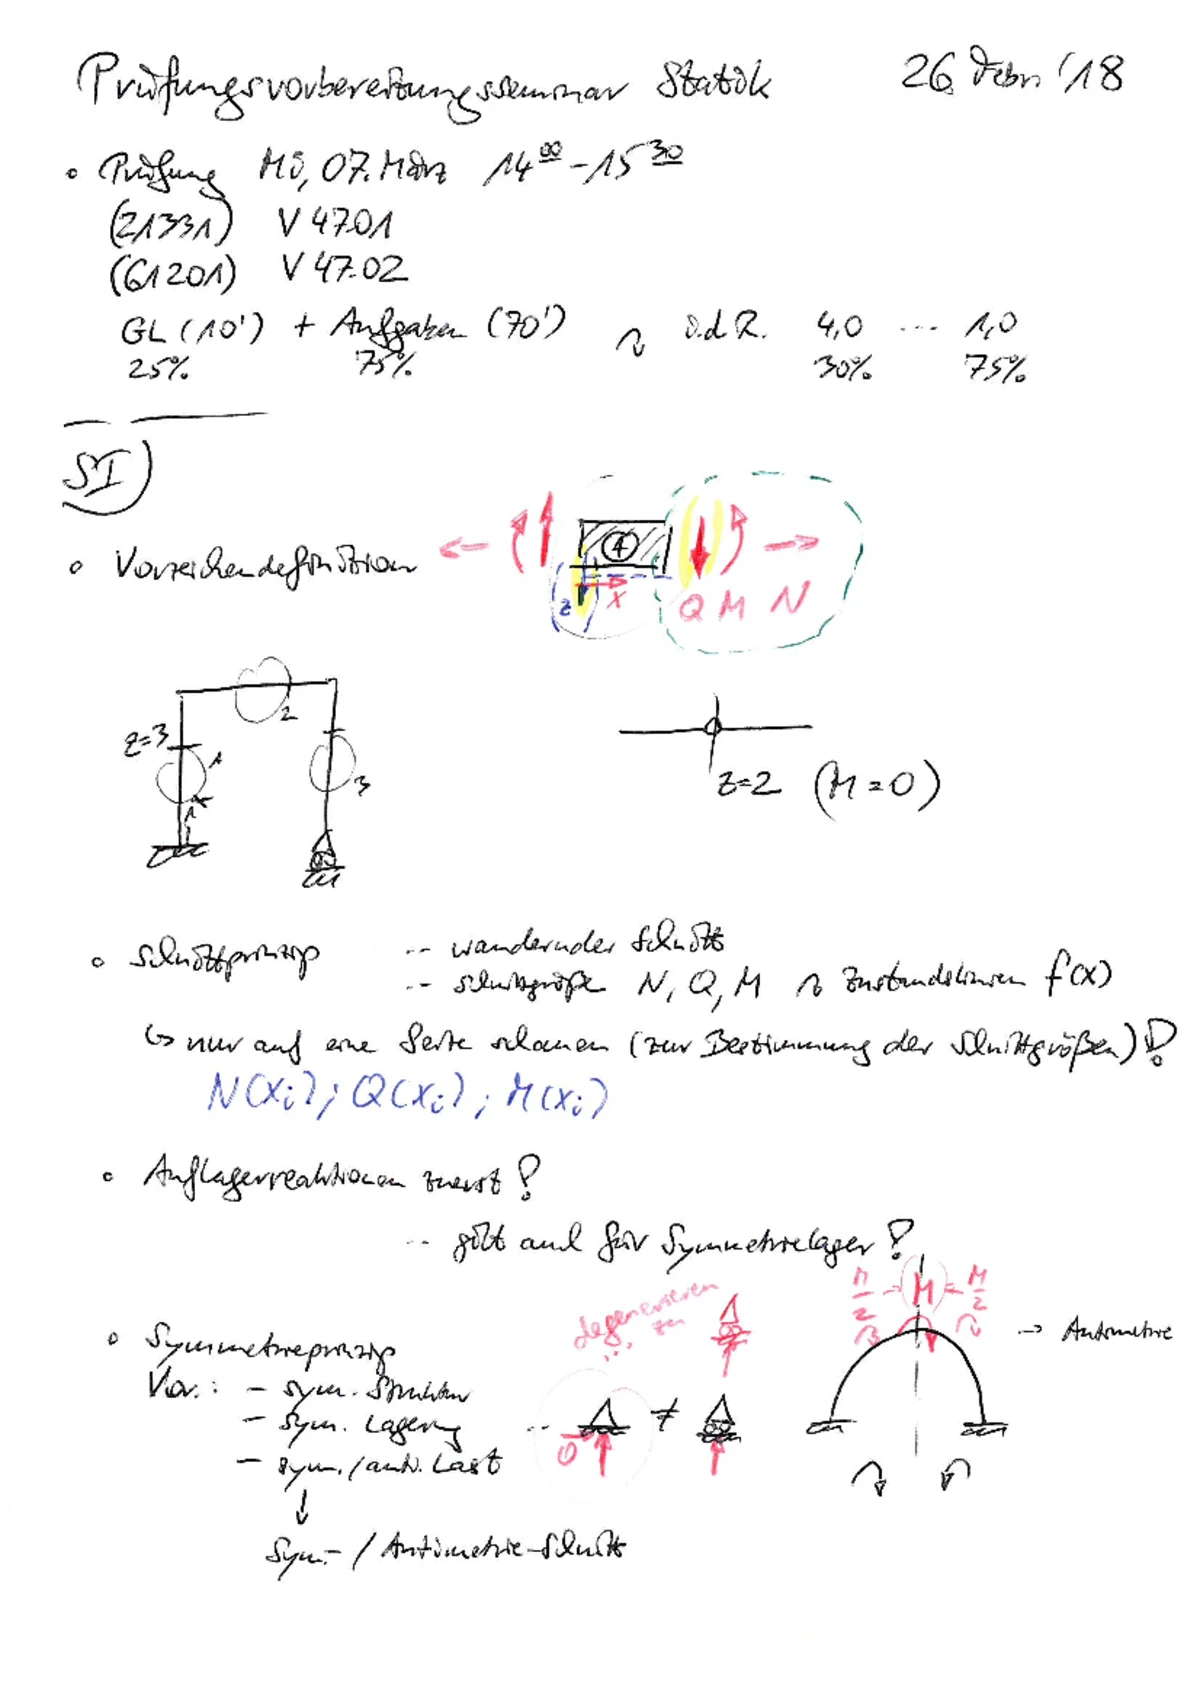 Prüfungsvorbereitungsseminar Statik 26. Febr. '18
• Prüfung Mi, 07. März 14 00 - 15 30
(21331) V 47.01
(61201) V 47.02
GL (10') + Aufgaben (70') ↝ i.d.R. 4,0 ... 1,0
25% 75% 30% 75%
SI)
• Vorzeichendefinition
+
z x Q M N
z=3 1 2 3
1
z=2 (M=0)
• Schnittprinzip -- wandernder Schnitt
-- Schnittgröße N, Q, M ↝ Zustandslinien f(x)
↳ nur auf eine Seite schauen (zur Bestimmung der Schnittgrößen)!
N(xi); Q(xi); M(xi)
• Auflagerreaktionen zuerst!
-- gilt auch für Symmetrielager!
degenerieren zu
M/2 - M - M/2
→ Antimetrie
• Symmetrieprinzip
Vor.: - sym. Struktur
- sym. Lagerung -- ≠
- sym./anti. Last
0
↓
Sym.- / Antimetrie-Schnitt